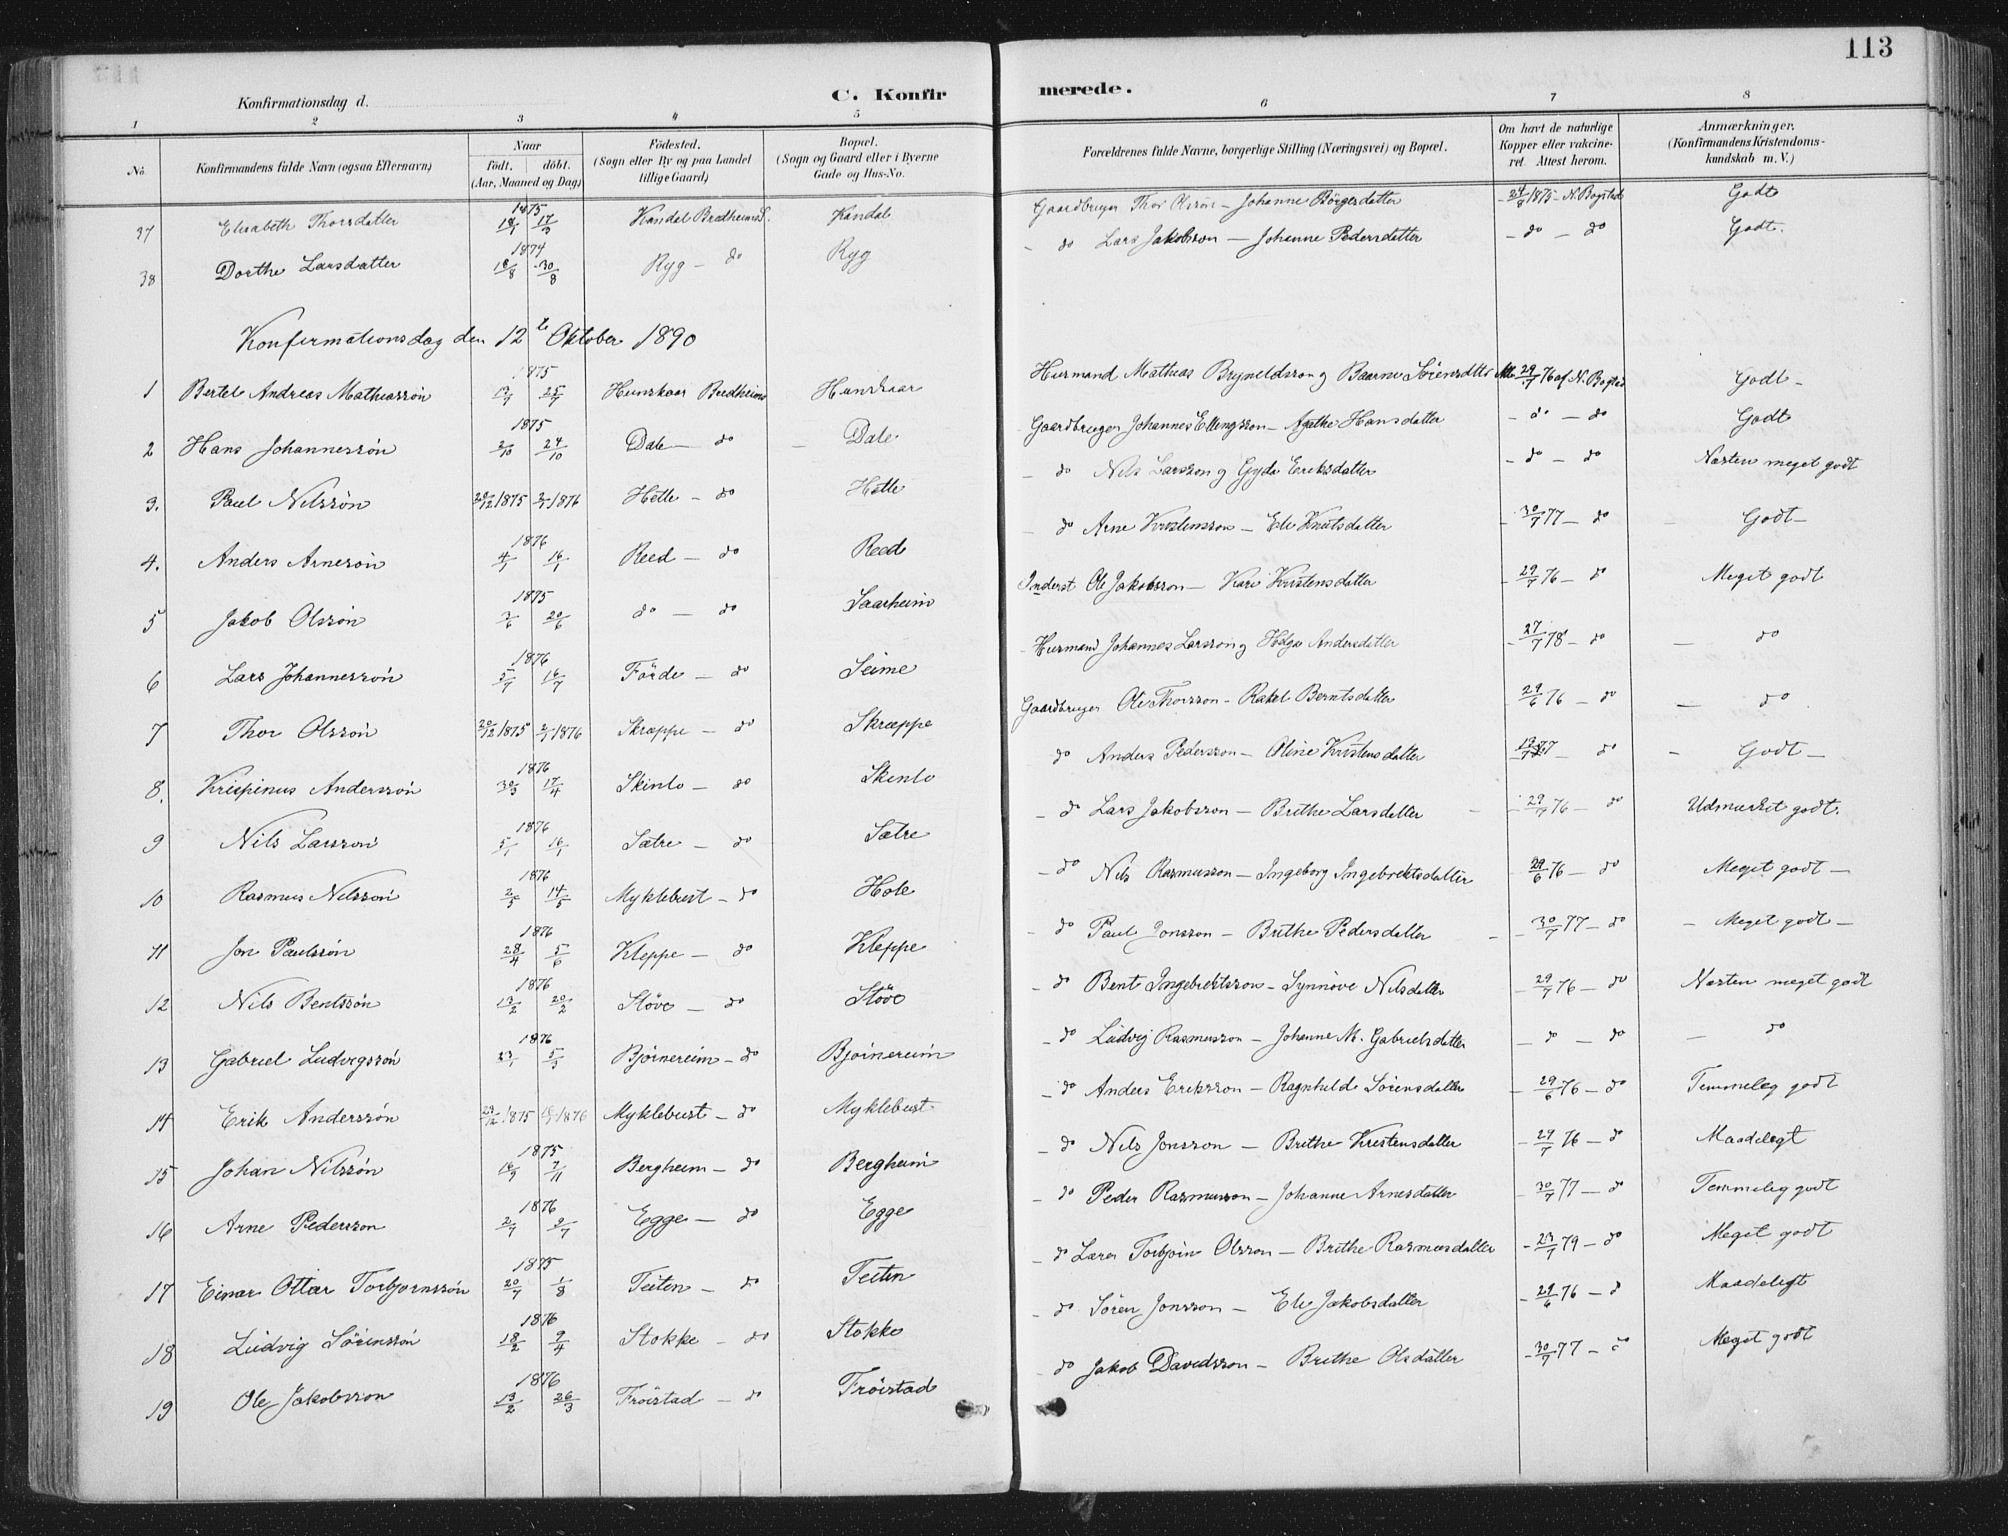 113
Konfirmationsdag d.
C. Konfirmerede.
1 2 3 4 5 6 7 8
No
Konfirmandens fulde Navn (ogsaa Efternavn)
Naar födt. döbt. (Aar, Maaned og Dag)
Födested. (Sogn eller By og paa Landet tillige Gaard)
Bopæl. (Sogn og Gaard eller i Byerne Gade og Hus-No.
Forældrenes fulde Navne, borgerlige Stilling (Næringsvei) og Bopæl.
Om havt de naturlige Kopper eller vakcineret. Attest herom.
Anmærkninger. (Konfirmandens Kristendomskundskab m. V.)
37 Elisabeth Thorsdatter 1875 Kandal Bredheims S. Kandal Gaardbruger Thor Olsson – Johanne Börgesdatter – 24/8 1875 – N. Bogstad Godt
38 Dorthe Larsdatter 1874 18/8 30/8 Ryg – do Ryg – do Lars Jakobsson – Johanne Pedersdatter – do – do Godt.
Konfirmationsdag den 12te Oktober 1890
1 Bertel Andreas Mathiassön 1875 13/7 25/7 Hunskaar Bredheims Hunskaar Huusmand Mathias Bryneldsson og Baarne Sörensdtter Att. 29/7 76 af N. Bogstad Godt –
2 Hans Johannessön 1875 2/10 24/10 Dale – do – Dale Gaardbruger Johannes Ellingsson – Agathe Hansdatter – do – do Godt
3. Paul Nilssön 28/12 1875 2/1 1876 Hetle – do Hetle – do Nils Larsson og Gyda Eriksdatter – do – do Næsten meget godt
4. Anders Arnesön 1876 4/1 16/1 Reed – do Reed – do Arne Kristensson – Eli Knutsdatter – 30/7 77 – do – Godt –
5 Jakob Olssön 1875 3/6 20/6 do – do Saarheim Inderst Ole Jakobsson – Kari Kristensdatter – 29/7 76 – do Meget godt
6 Lars Johannessön 1876 5/7 16/7 Förde – do Seime Huusmand Johannes Larsson og Helga Andersdatter – 27/7 78 – do – do
7 Thor Olssön 20/12 1875 2/1 1876 Skræppe – do Skræppe Gaardbruger Ole Thorsson – Rakel Berntsdatter 29/6 76 – do – do
8. Krispinus Anderssön 1876 30/3 17/4 Skinlo – do Skinlo do Anders Pedersson – Oline Kristensdatter – do – Godt –
9 Nils Larsson 1876 5/1 16/1 Sætre – do Sætre – do Lars Jakobsson – Brithe Larsdatter – 29/7 76 – do Udmærket godt.
10 Rasmus Nilssön 1876 2/5 14/5 Myklebust – do Hole – do Nils Rasmusson – Ingeborg Ingebrektsdatter 29/6 76 – do Meget godt –
11 Jon Paulssön 1876 28/4 5/6 Kleppe – do Kleppe – do Paul Jonsson – Brithe Pedersdatter – 30/7 77 – do – Meget godt –
12 Nils Bentssön 1876 13/2 20/2 Støve – do Støve – do Bent Ingebrektsson – Synnöve Nilsdatter – 29/7 76 – do Næsten meget godt
13 Gabriel Ludvigssön 1876 23/1 5/3 Bjöinereim – do Bjöinereim – do Ludvig Rasmusson – Johanne M. Gabrielsdatter – do – do – do
14 Erik Anderssön 29/12 1875 1876 Myklebust – do Myklebust – do Anders Eriksson – Ragnhilde Sörensdatter – 29/6 76 – do Temmelig godt
15 Johan Nilssön 1875 16/9 7/11 Bergheim – do Bergheim – do Nils Jonsson – Brithe Kristensdatter – 29/7 76 – do Maadeligt
16 Arne Pedersson 1876 2/7 9/7 Egge – do Egge – do Peder Rasmusson – Johanne Arnesdatter – 30/7 77 – do Temmelig godt
17 Einar Ottar Torbjornssön 1875 20/7 1/8 Teiten – do Teiten do Lærer Torbjöin Olsson – Brithe Rasmusdatter – 23/7 79 – do Meget godt
18 Ludvig Sörenssön 1876 18/2 9/4 Stokke – do Stokke – do Sören Jonsson – Eli Jakobsdatter – 29/6 76 – do Maadeligt
19 Ole Jakobsson 1876 13/2 26/3 Fröistad – do Fröistad – do Jakob Davidsson – Brithe Olsdatter – 30/7 77 – do Meget godt